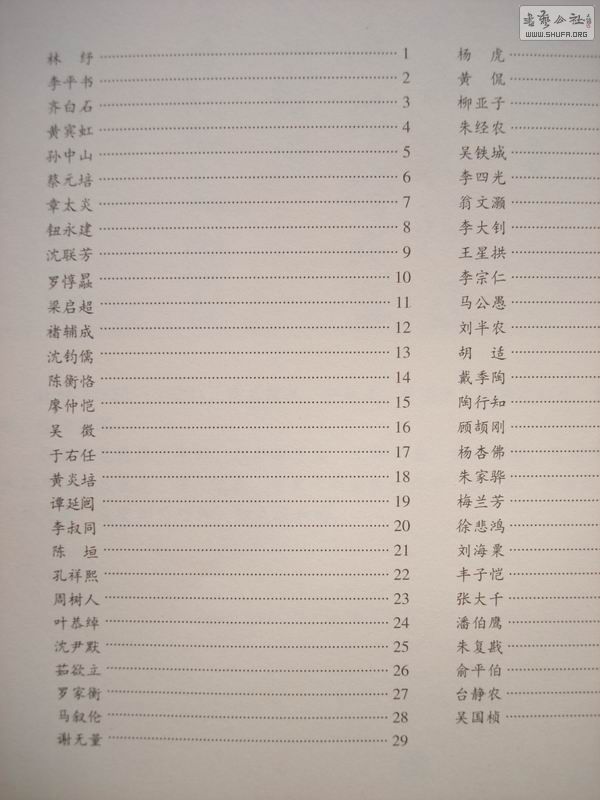 书艺公社
WWW.SHUFA.ORG
林　纾 1
李平书 2
齐白石 3
黄宾虹 4
孙中山 5
蔡元培 6
章太炎 7
钮永建 8
沈联芳 9
罗惇曧 10
梁启超 11
褚辅成 12
沈钧儒 13
陈衡恪 14
廖仲恺 15
吴　徵 16
于右任 17
黄炎培 18
谭延闿 19
李叔同 20
陈　垣 21
孔祥熙 22
周树人 23
叶恭绰 24
沈尹默 25
茹欲立 26
罗家衡 27
马叙伦 28
谢无量 29
杨　虎
黄　侃
柳亚子
朱经农
吴铁城
李四光
翁文灏
李大钊
王星拱
李宗仁
马公愚
刘半农
胡　适
戴季陶
陶行知
顾颉刚
杨杏佛
朱家骅
梅兰芳
徐悲鸿
刘海粟
丰子恺
张大千
潘伯鹰
朱复戡
俞平伯
台静农
吴国桢